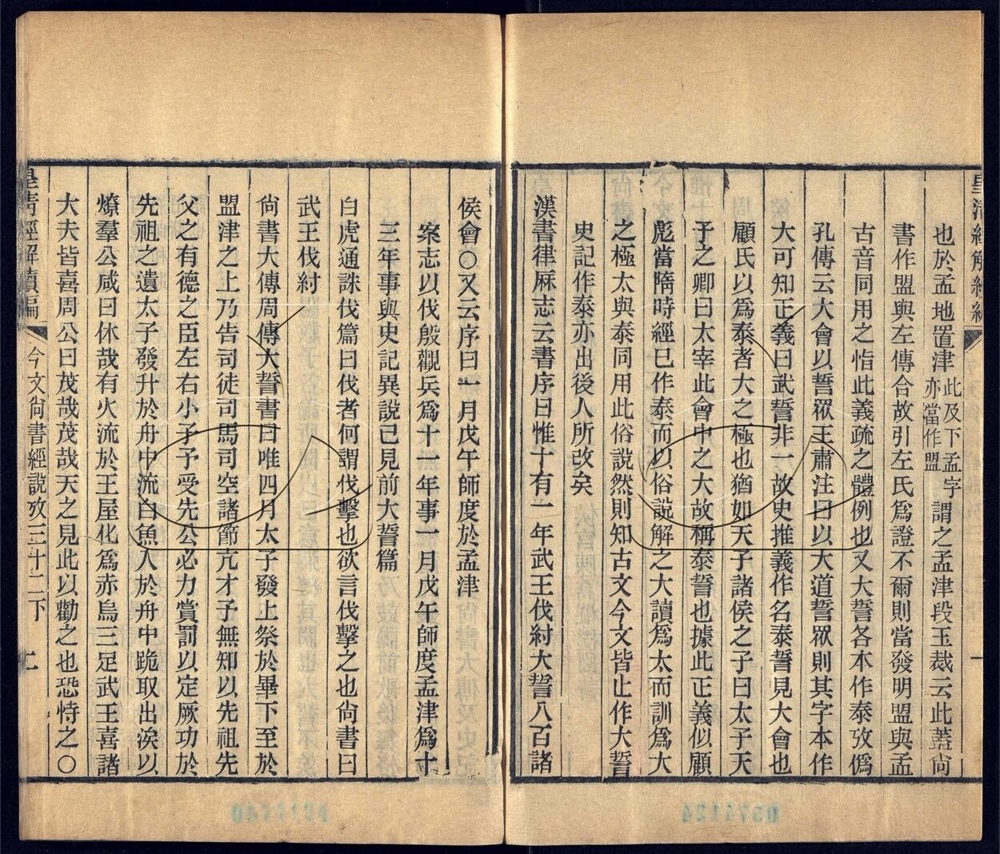 皇清經解續編
也於孟地置津此及下孟字亦當作盟謂之孟津段玉裁云此蓋尙
書作盟與左傳合故引左氏爲證不爾則當發明盟與孟
古音同用之恉此義疏之體例也又大誓各本作泰攷僞
孔傳云大會以誓眾王肅注曰以大道誓眾則其字本作
大可知正義曰武誓非一故史推義作名泰誓見大會也
顧氏以爲泰者大之極也猶如天子諸侯之子曰太子天
子之卿曰太宰此會中之大故稱泰誓也據此正義似顧
彪當隋時經已作泰而以俗說解之大讀爲太而訓爲大
之極太與泰同用此俗說然則知古文今文皆止作大誓
史記作泰亦出後人所改矣
漢書律厤志云書序曰惟十有一年武王伐紂大誓八百諸
侯會○又云序曰一月戊午師度於孟津
案志以伐殷觀兵爲十一年事一月戊午師度孟津爲十
三年事與史記異說已見前大誓篇
白虎通誅伐篇曰伐者何謂伐擊也欲言伐擊之也尙書曰
武王伐紂
尙書大傳周傳大誓書曰唯四月太子發上祭於畢下至於
盟津之上乃告司徒司馬司空諸節亢才予無知以先祖先
父之有德之臣左右小子予受先公必力賞罰以定厥功於
先祖之遺太子發升於舟中流白魚入於舟中跪取出涘以
燎羣公咸曰休哉有火流於王屋化爲赤烏三足武王喜諸
大夫皆喜周公曰茂哉茂哉天之見此以勸之也恐恃之○
皇清經解續編
今文尙書經說攷三十二下